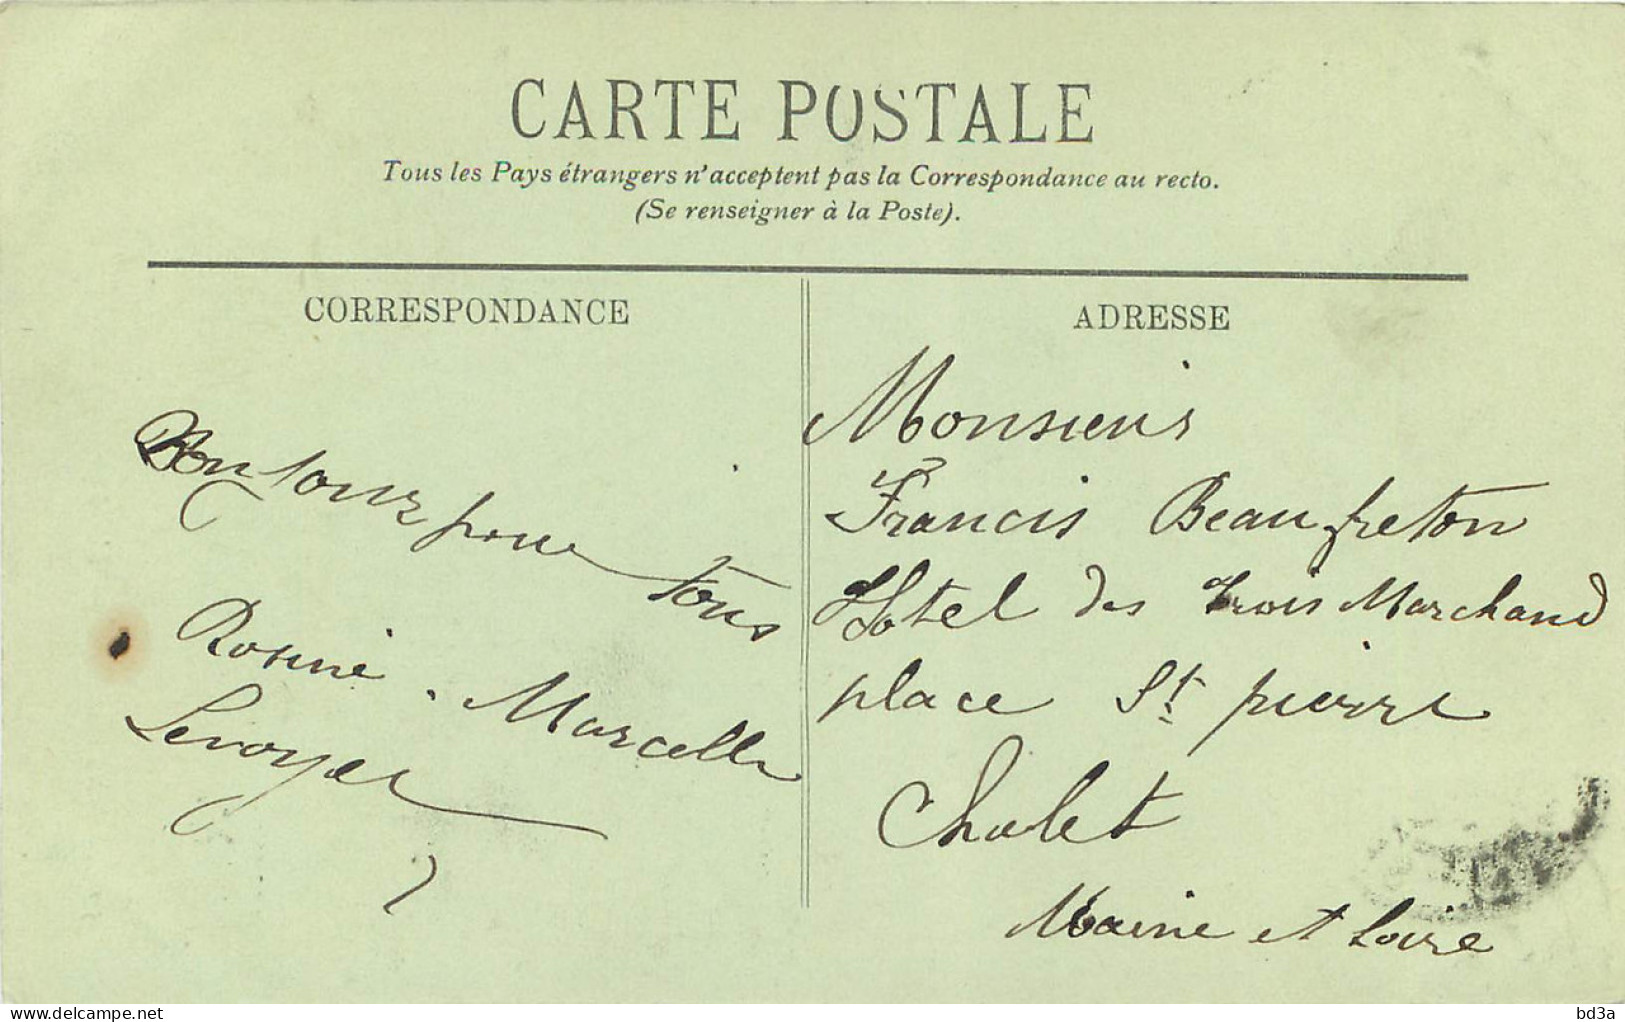 CARTE POSTALE
Tous les Pays étrangers n'acceptent pas la Correspondance au recto.
(Se renseigner à la Poste).
CORRESPONDANCE
Bonjour pour tous
Rosine . Marcelle
Leroyer
ADRESSE
Monsieur
Francis Beaufreton
Hotel des trois Marchand
place St pierre
Cholet
Maine et Loire
delcampe.net
bd3a